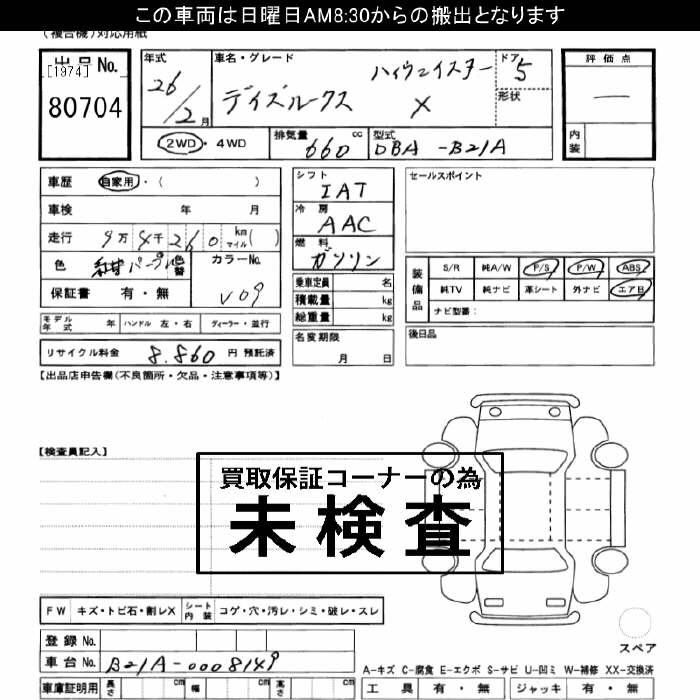 この車両は日曜日AM8:30からの搬出となります
(複合機)対応用紙
出品No.
[1974]
80704
年式
26/2月
車名・グレード
ハイウェイスター
デイズルークス X
ドア
5
形状
評価点
内装
2WD・4WD
排気量 660 cc
型式 DBA-B21A
車歴 自家用・( )
車検 年 月
走行 9万4千260 km マイル( )
色 パープル 色替
カラーNo. V09
保証書 有・無
シフト IAT
冷房 AAC
燃料 ガソリン
乗車定員 名
積載量 kg
総重量 kg
名変期限
月 日
セールスポイント
装備品
S/R 純A/W P/S P/W ABS
純TV 純ナビ 革シート 外ナビ エアB
ナビ型番:
後日品
モデル年式 年 ハンドル 左・右 ディーラー・並行
リサイクル料金 8.860 円 預託済
【出品店申告欄(不良箇所・欠品・注意事項等)】
【検査員記入】
買取保証コーナーの為
未検査
FW キズ・トビ石・割レX シート内装 コゲ・穴・汚レ・シミ・破レ・スレ
登録No.
車台No. B21A-0008149
車庫証明用 長さ cm 幅 cm 高さ cm
スペア
A-キズ C-腐食 E-エクボ S-サビ U-凹ミ W-補修 XX-交換済
工具 有・無 ジャッキ 有・無